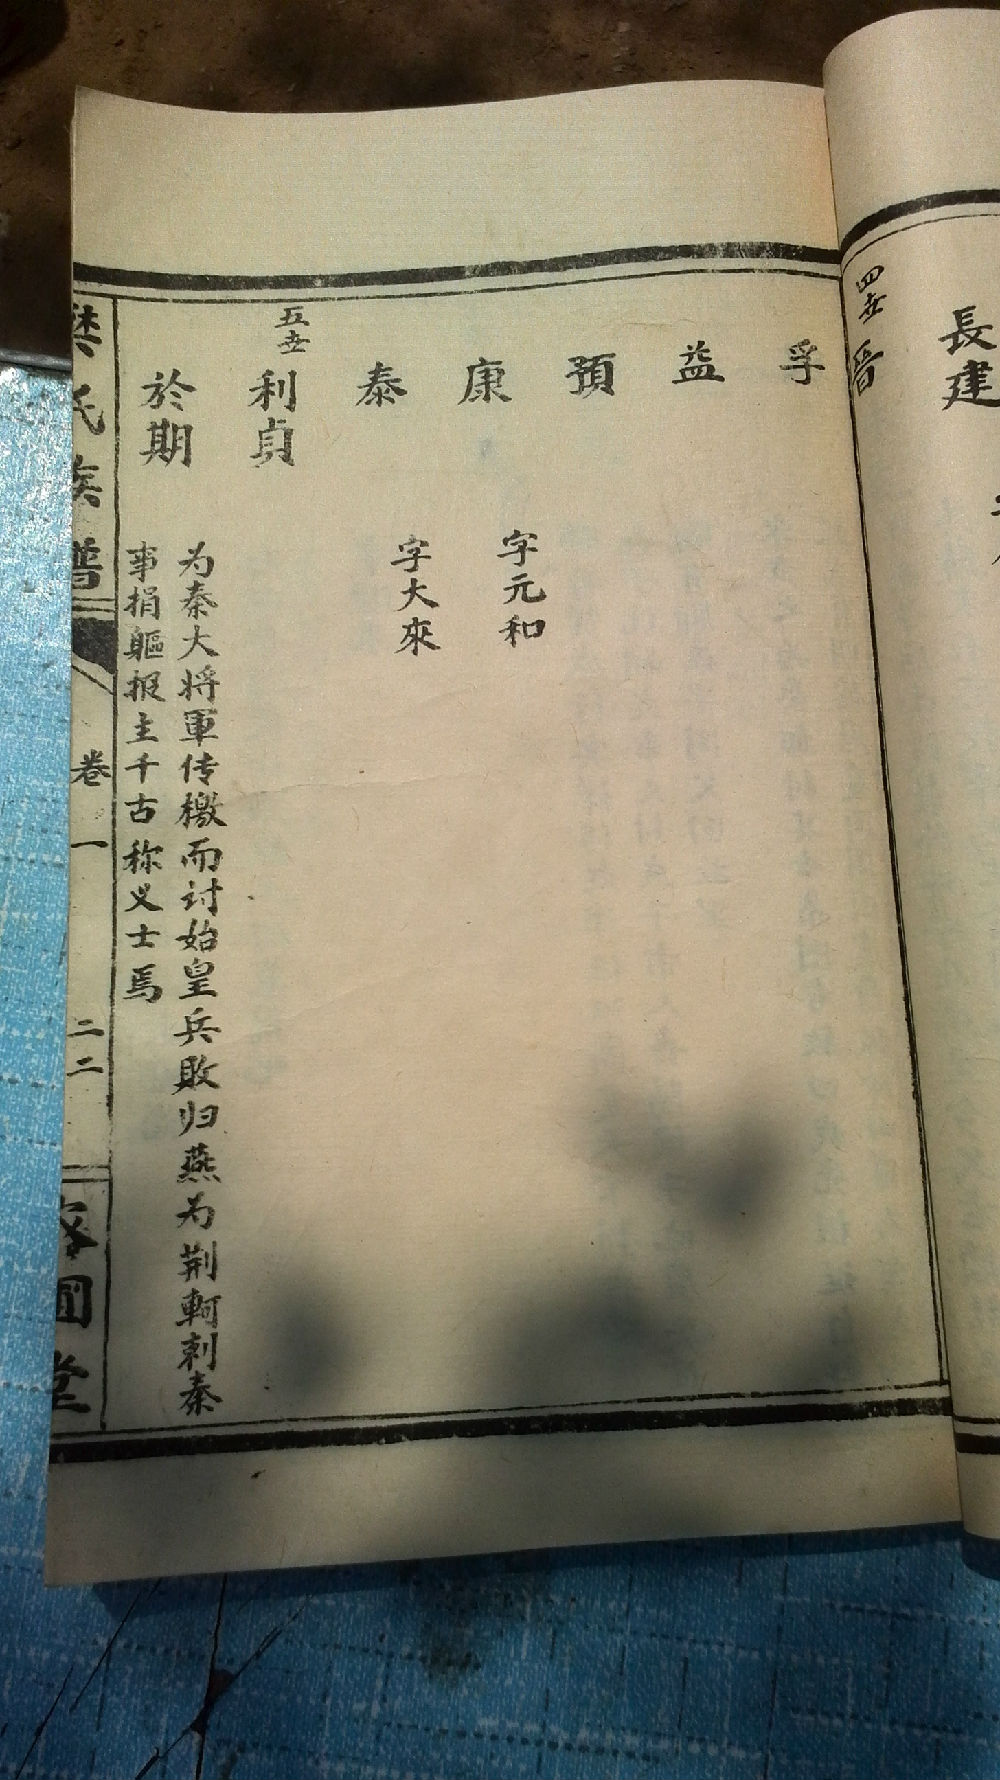 長建
四世 晉
孚
益
預
康 字元和
泰 字大來
五世 利貞
於期 为秦大将軍传檄而讨始皇兵敗归燕为荆軻刺秦
事捐軀报主千古称义士焉
樊氏族譜 卷一 二二